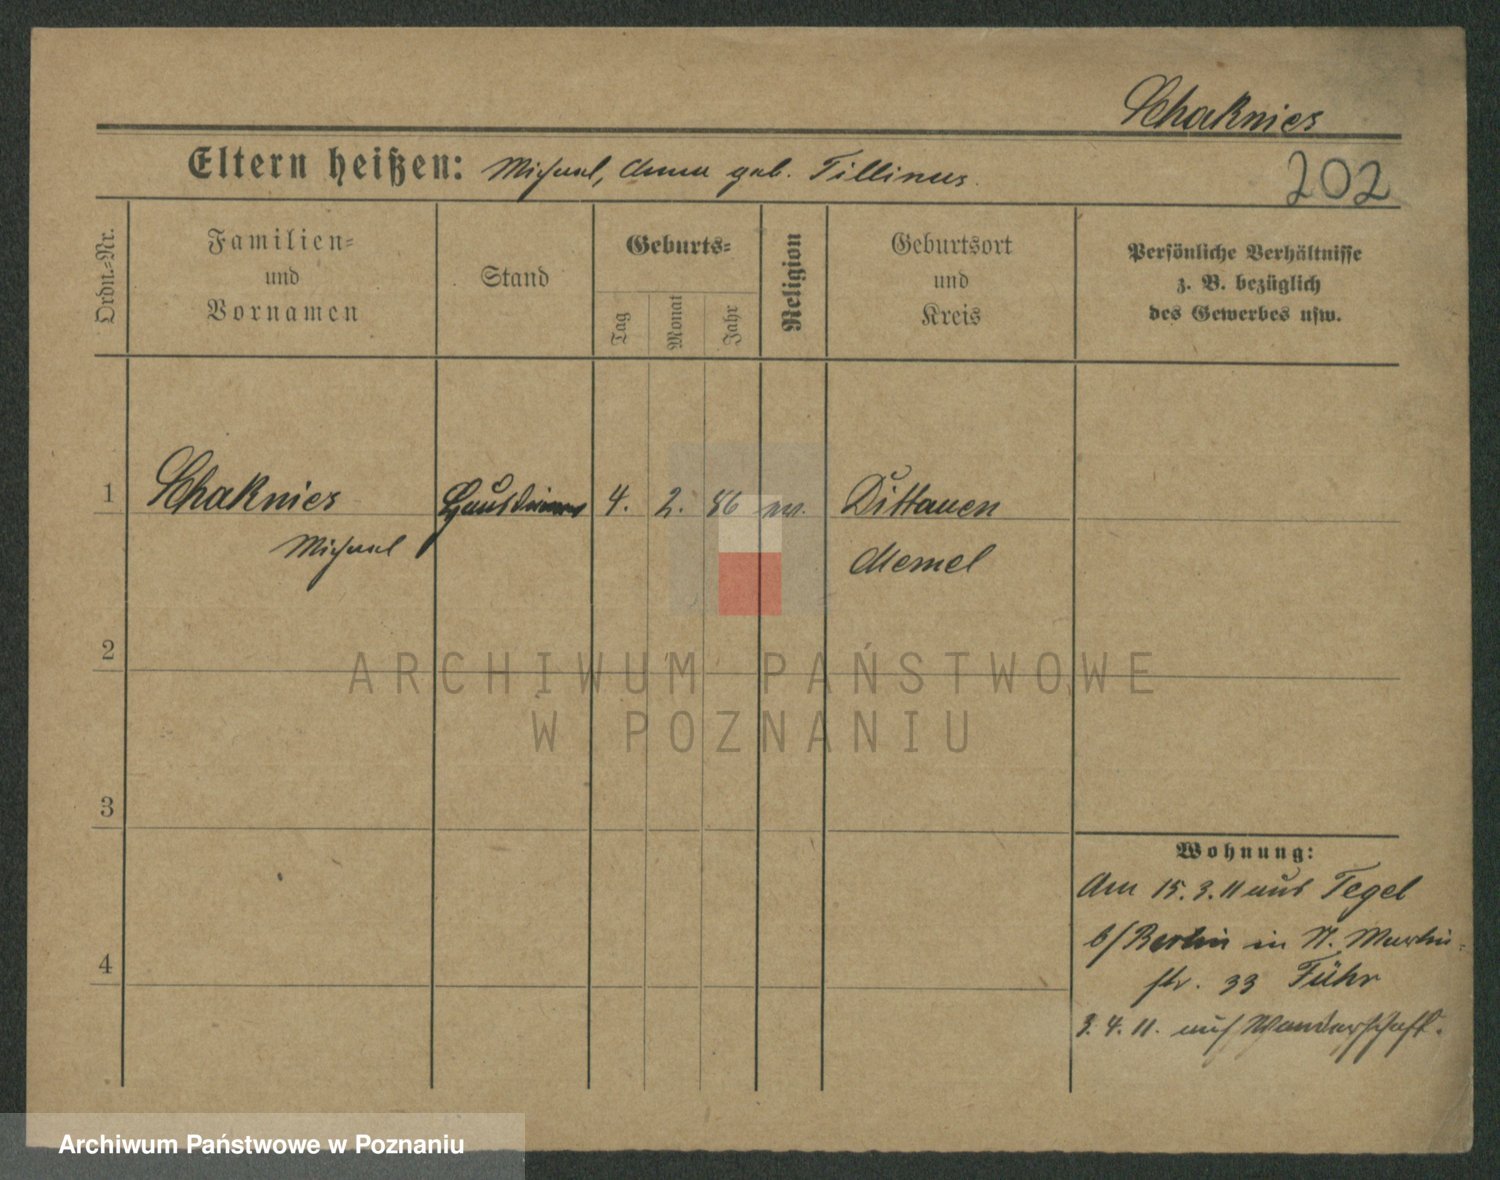 Schaknies
Eltern heißen: Michael, Anna geb. Tillinus.
202
Ordn.-Nr.
Familien-
und
Vornamen
Stand
Geburts-
Tag
Monat
Jahr
Religion
Geburtsort
und
Kreis
Persönliche Verhältnisse
z. B. bezüglich
des Gewerbes usw.
1
Schaknies
Michael
Hausdiener
4. 2. 86
Dittauen
Memel
2
ARCHIWUM PAŃSTWOWE
W POZNANIU
3
Wohnung:
Am 15.3.11 aus Tegel
b/Berlin in St. Martin-
str. 33 Führ
3.4.11. auf Wanderschaft.
4
Archiwum Państwowe w Poznaniu